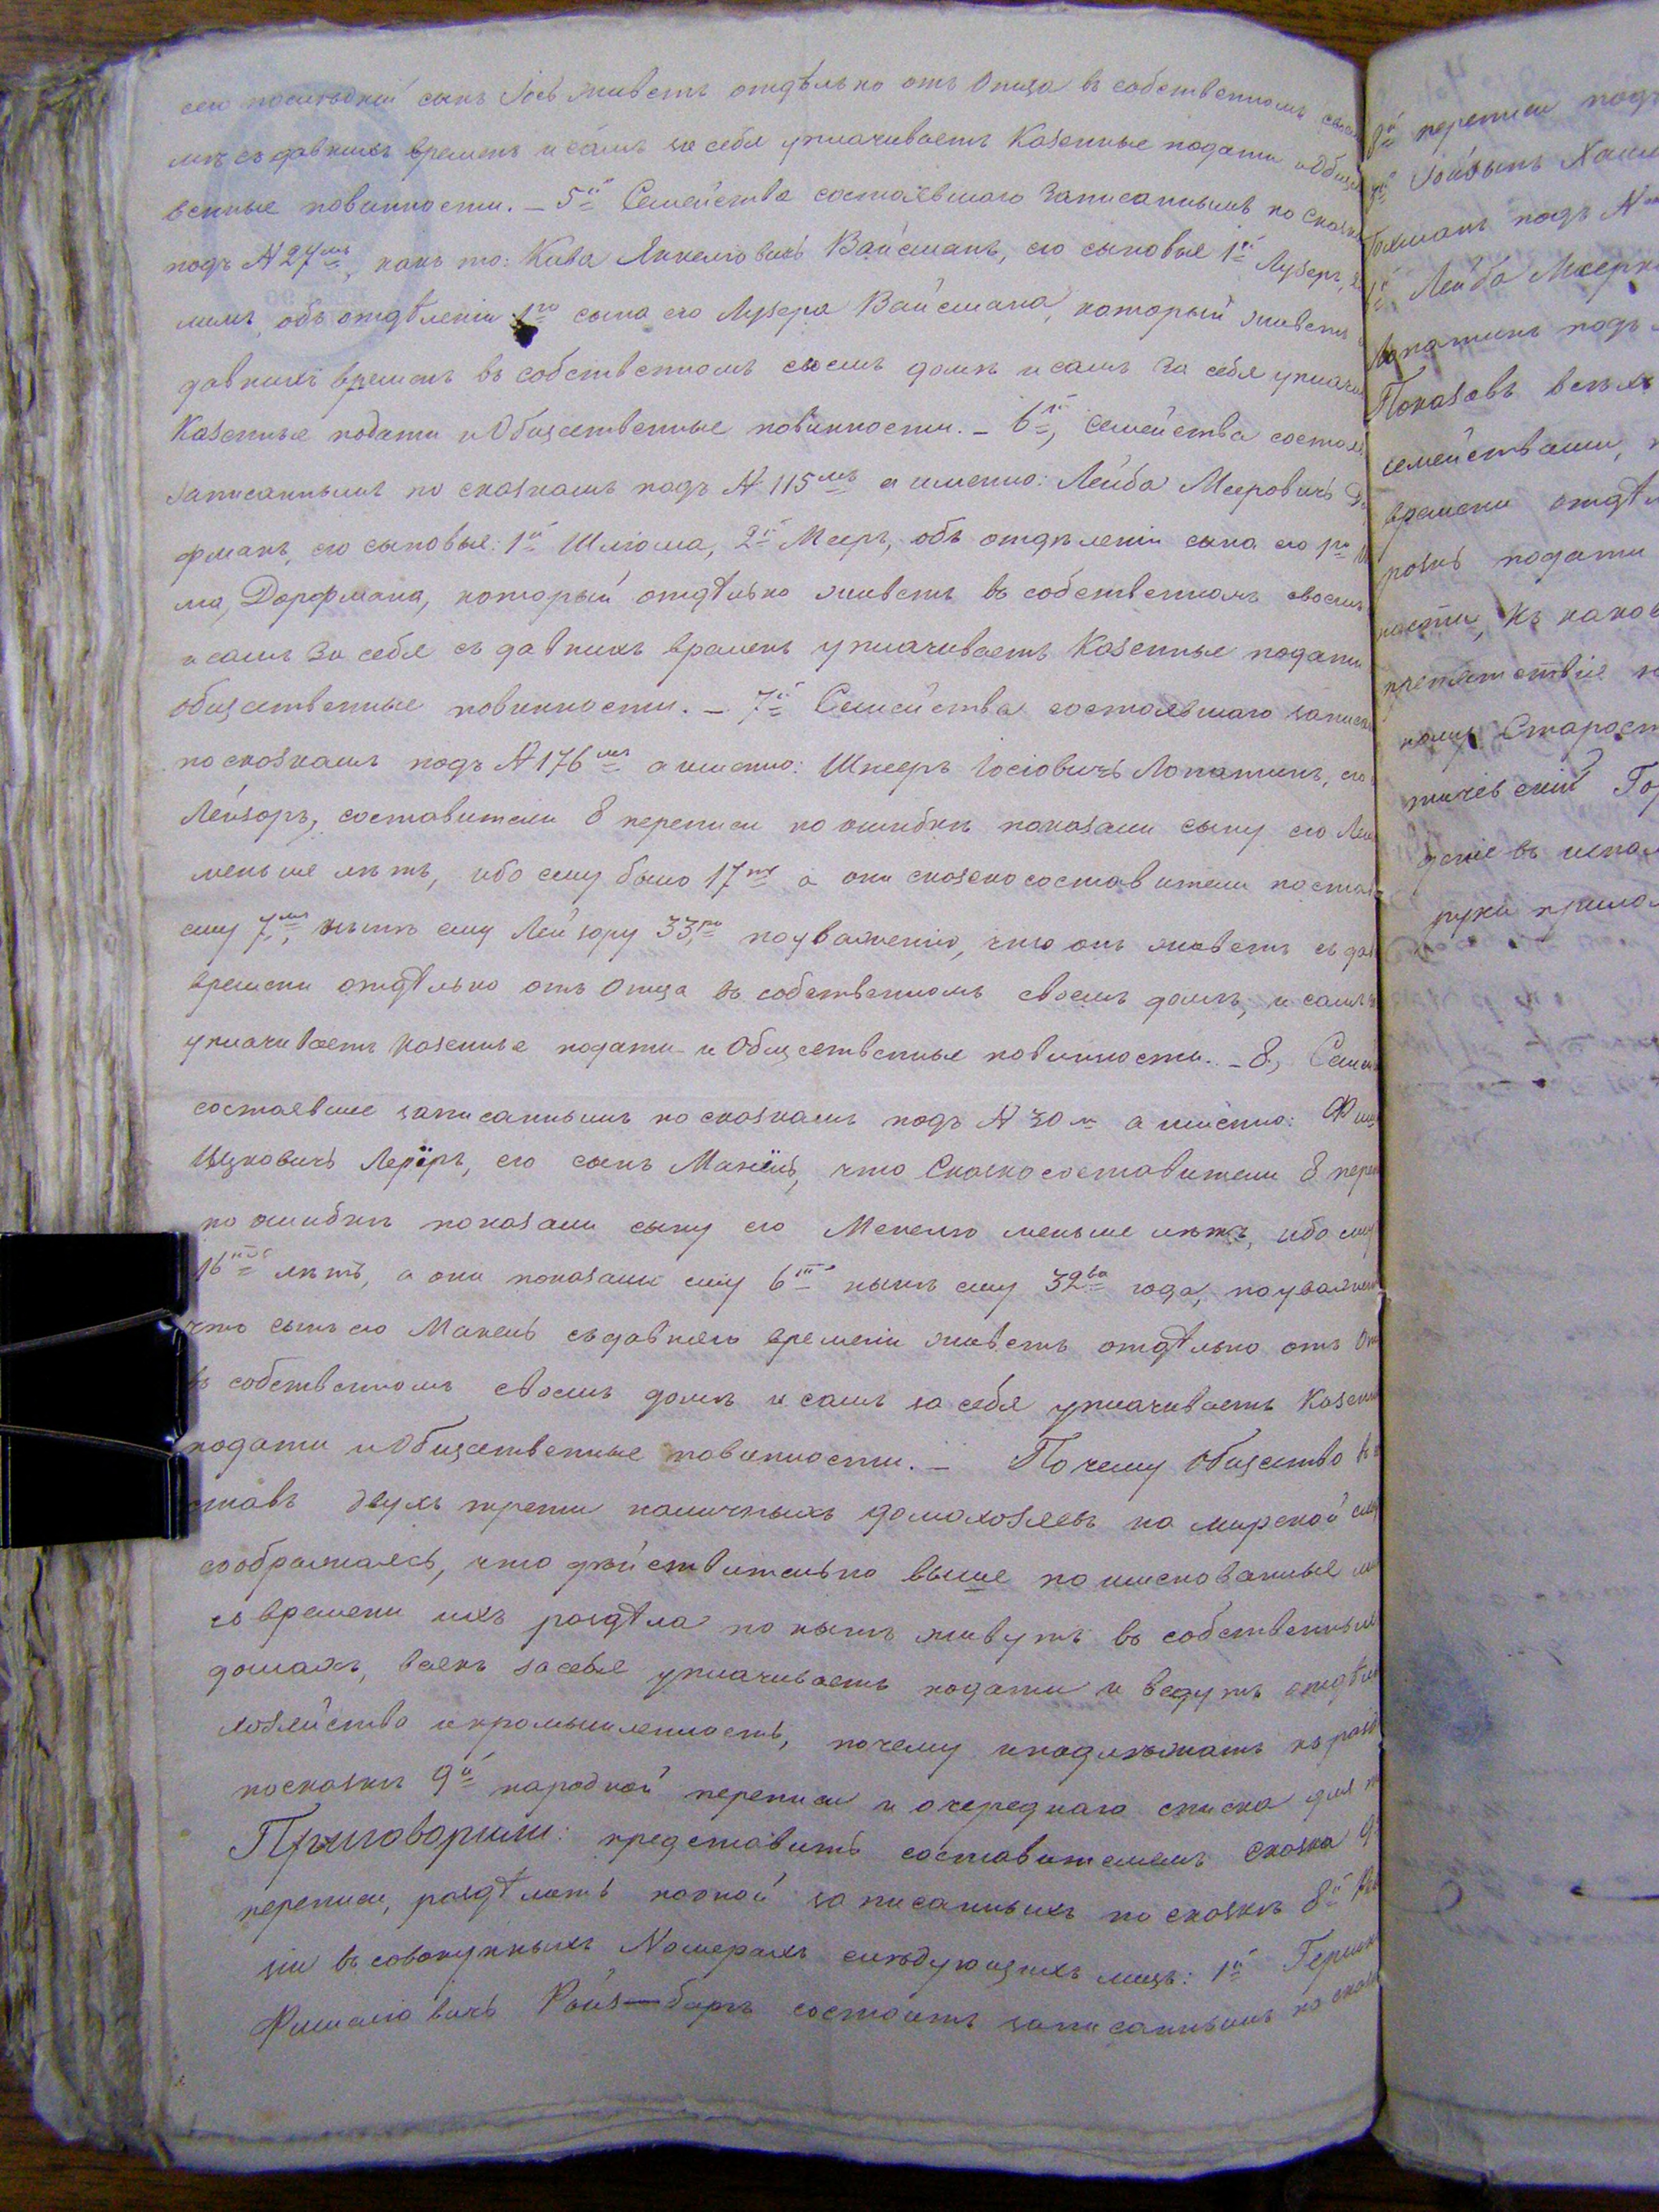 сего послѣдній сынъ Іось живетъ отдѣльно отъ Отца въ собственномъ своем
мъ съ давнихъ временъ и самъ за себя уплачиваетъ Казенные подати и Общес
венные повинности. – 5й Семейства состоявшаго Записаннымъ по сказка
подъ № 27мъ, какъ то: Кива Янкелювичъ Вайсманъ, его сыновья 1й Лузеръ,
лимъ, объ отдѣленіи 1го сына его Лузера Вайсмана, который живетъ
давнихъ временъ въ собственномъ своемъ домѣ и самъ за себя уплачи
Казенные подати и Общественные повинности. – 6й, Семейства состоя
записаннымъ по сказкамъ подъ № 115мъ а именно: Лейба Мееровичъ До
рфманъ, его сыновья: 1й Шлиома, 2й Мееръ, объ отдѣленіи сына его 1го
ма, Дорфмана, который отдѣльно живетъ въ собственномъ своемъ
и самъ за себя съ давнихъ временъ уплачиваетъ Казенные подати
общественные повинности. – 7й Семейства состоявшаго записа
по сказкамъ подъ № 176мъ а именно: Шнееръ Іосіовичъ Лопатинъ, его
Лейзоръ, составители 8 переписи по ошибкѣ показали сыну его Лей
меньше лѣтъ, ибо ему было 17ть а они сказкосоставители постав
ему 7мь, нынѣ ему Лейзору 33ри по уваженію, что онъ живетъ съ дав
времени отдѣльно отъ Отца въ собственномъ своемъ домѣ, и самъ
уплачиваетъ казенные подати и Общественные повинности. – 8, Семей
состоявшие записаннымъ по сказкамъ подъ № 30м а именно: Фи
Ицковичъ Лернеръ, его сынъ Манель, что Сказкосоставители 8 пере
по ошибкѣ показали сыну его Менелю меньше лѣтъ, ибо ему
16ть лѣтъ, а они показали ему 6ть нынѣ ему 32ва года, по уважен
что сынъ его Манель съ давняго времени живетъ отдѣльно отъ От
въ собственномъ своемъ домѣ и самъ за себя уплачиваетъ Казенн
подати и Общественные повинности. – Почему Общество въ
ставъ двухъ трети наличныхъ домохозяевъ на мирской
соображаясь, что дѣйствительно выше поименованные
съ времени ихъ раздѣла по нынѣ живутъ въ собственныхъ
домахъ, всякъ за себя уплачиваетъ подати и ведутъ отдѣл
хозяйство и промышленность, почему и надлежатъ къ разд
по сказкѣ 9й народной переписи и очереднаго списка для
Приговорили: представить составителямъ Сказка 9й
переписи, раздѣлить новой записанныхъ по сказкѣ 8й Рев
зіи въ совокупныхъ Номерахъ слѣдующихъ лицъ: 1й Герш
Фишелювичъ Ройзбаргъ состоитъ записаннымъ по сказк
8й переписи подъ
подъ №
Лейба Меерк
Лопатинъ подъ
Показавъ всѣхъ
семействами,
времени отдѣл
подати
ности, къ каков
препятствіе
Старост
Гор
въ испол
руки прилож